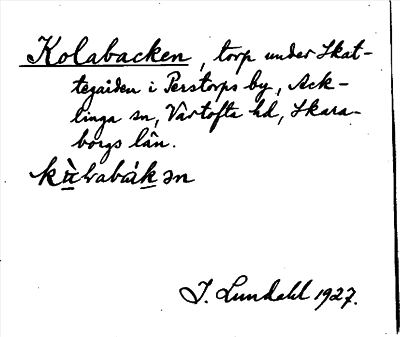 Kolabacken, torp under Skat-
tegården i Perstorps by, Ack-
linga sn, Vartofta hd, Skara-
borgs län.
kὼlrabákən
J. Lundahl 1927.